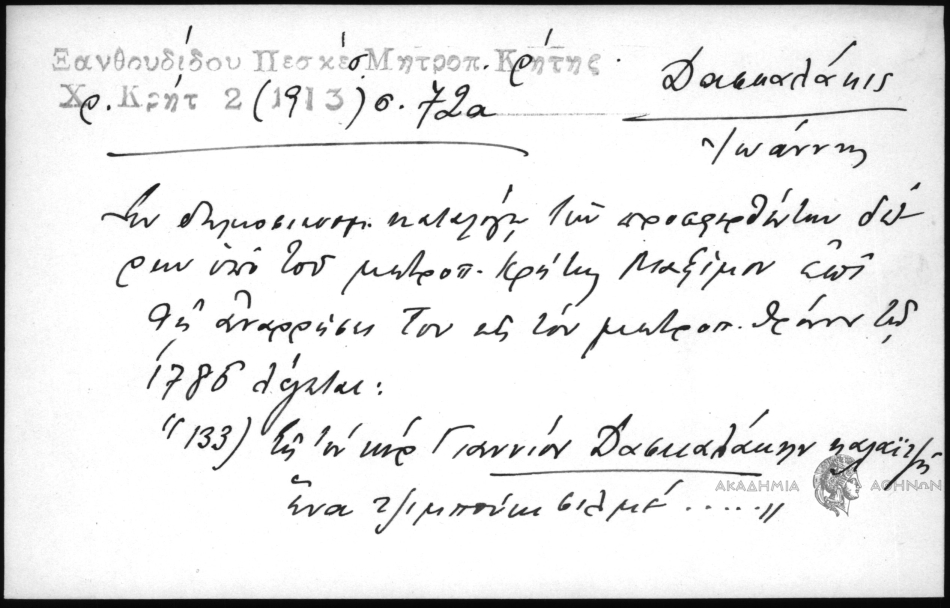 Ξανθουδίδου Πεσκέσ. Μητροπ. Κρήτης
Χρ. Κρήτ 2 (1913) σ. 72α
Δασκαλάκις
Ἰωάννης
Ἐν δημοσιευομ. καταλόγῳ τῶν προσφερθέντων δώ-
ρων ὑπὸ τοῦ μητροπ. Κρήτης Μαξίμου ἐπὶ
τῇ ἀναρρήσει του εἰς τὸν μητροπ. θρόνον τῷ
1786 λέγεται:
"133) Εἰς τὸν κὺρ Γιαννιὸν Δασκαλάκην καλαϊτζῆ
ἕνα τζιμπούκι σιλμέ ....."
ΑΚΑΔΗΜΙΑ ΑΘΗΝΩΝ